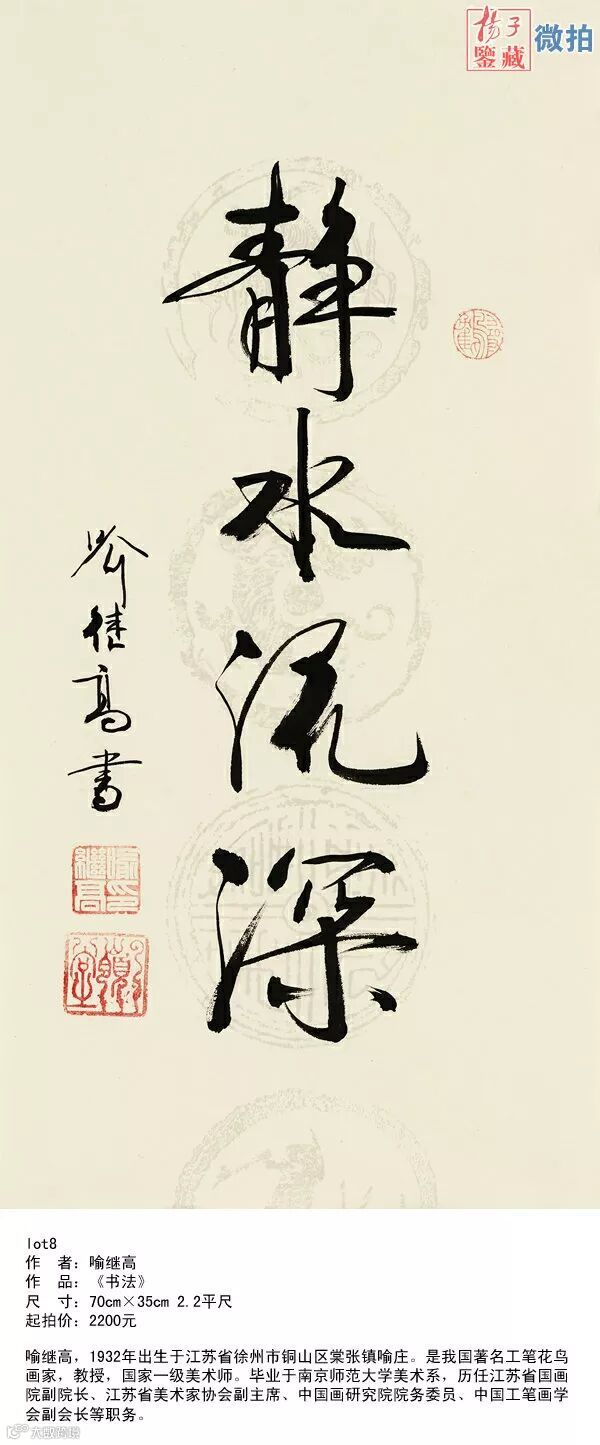 扬子
鉴藏
微拍
静水流深
喻继高书
喻继高印
lot8
作 者：喻继高
作 品：《书法》
尺 寸：70cm×35cm 2.2平尺
起拍价：2200元
喻继高，1932年出生于江苏省徐州市铜山区棠张镇喻庄。是我国著名工笔花鸟
画家，教授，国家一级美术师。毕业于南京师范大学美术系，历任江苏省国画
院副院长、江苏省美术家协会副主席、中国画研究院院务委员、中国工笔画学
会副会长等职务。